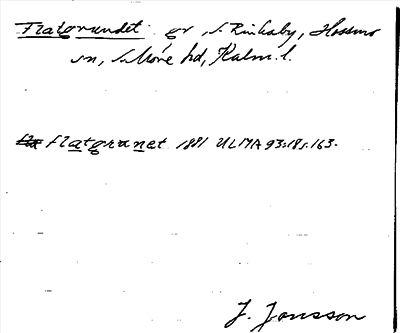 Flatgrundet gr, S. Rinkaby, Hossmo
sn, S. Möre hd, Kalm. l.
flatgranet 1881 ULMA 93:18 s. 163.
J. Jonsson